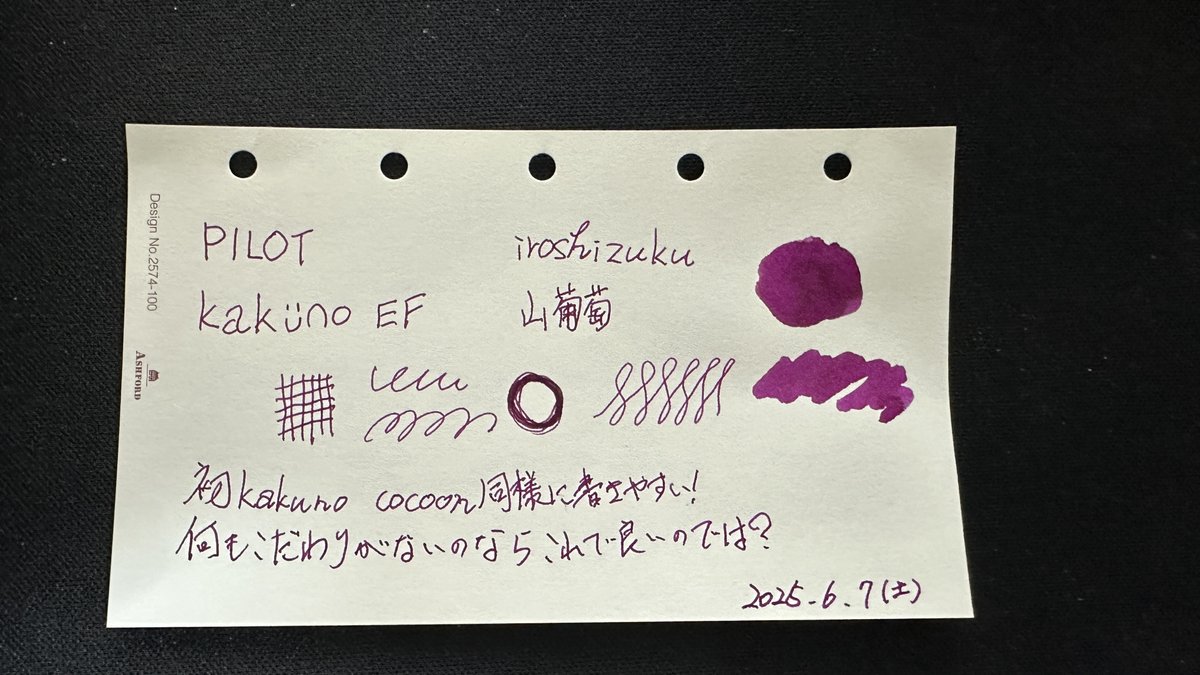 Design No.2574-100
ASHFORD
PILOT
iroshizuku
kakuno EF
山葡萄
初kakuno cocoon同様に書きやすい!
何もこだわりがないのならこれで良いのでは?
2025.6.7(土)